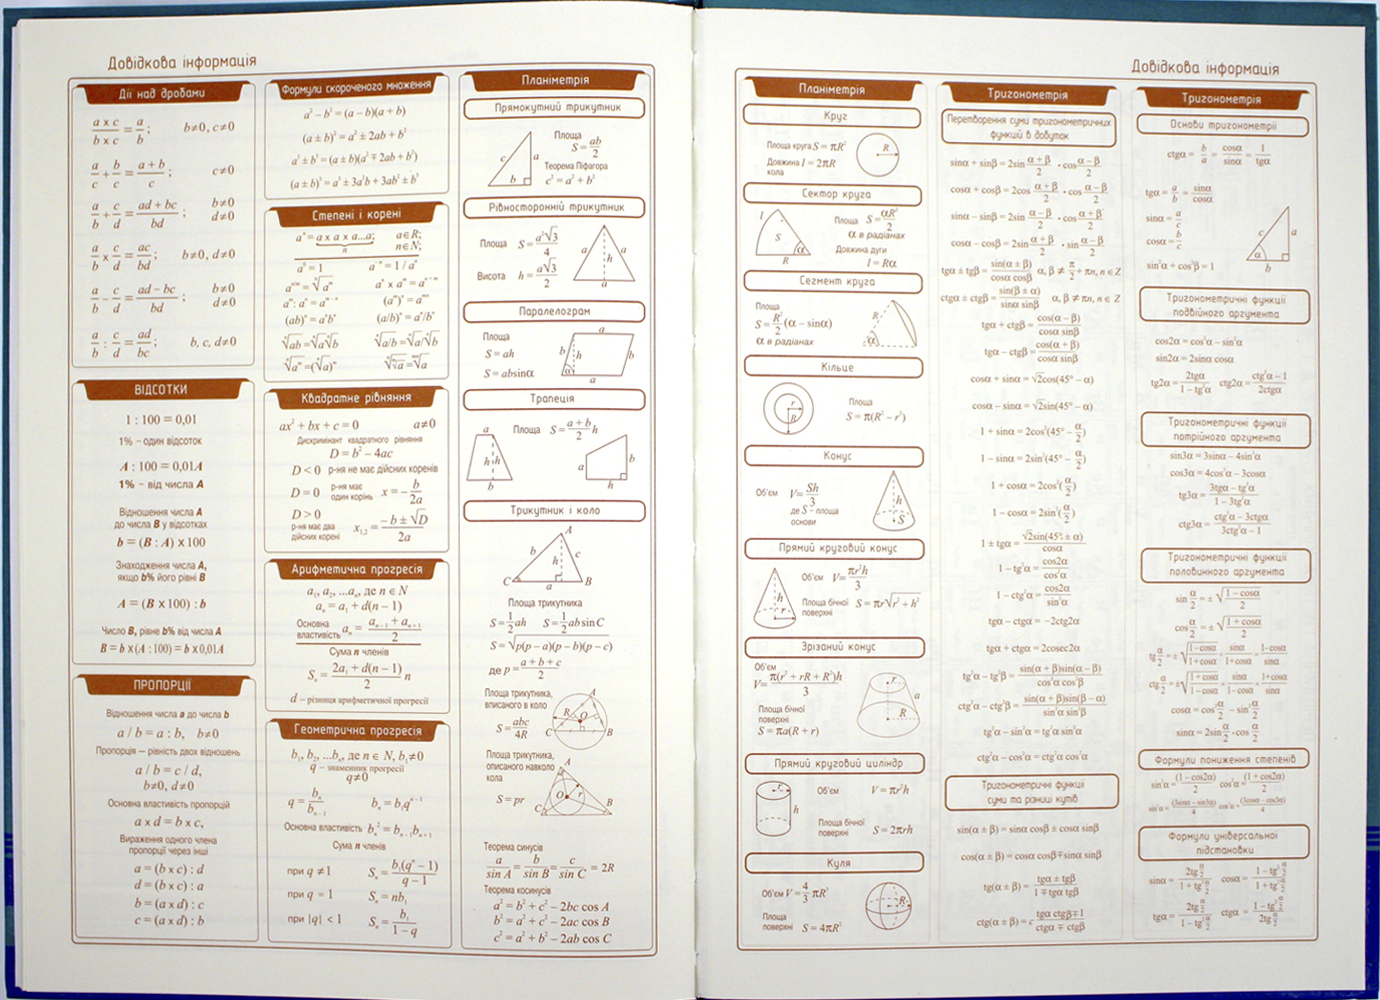 Довідкова інформація
Дії над дробами
a x c / b x c = a / b ; b≠0, c≠0
a / c + b / c = a + b / c ; c≠0
a / b + c / d = ad + bc / bd ; b≠0 d≠0
a / b x c / d = ac / bd ; b≠0, d≠0
a / b - c / d = ad - bc / bd ; b≠0 d≠0
a / b : c / d = ad / bc ; b, c, d≠0
ВІДСОТКИ
1 : 100 = 0,01
1% – один відсоток
A : 100 = 0,01A
1% – від числа A
Відношення числа A
до числа B у відсотках
b = (B : A) x 100
Знаходження числа A,
якщо b% його рівні B
A = (B x 100) : b
Число B, рівне b% від числа A
B = b x (A : 100) = b x 0,01A
ПРОПОРЦІЇ
Відношення числа a до числа b
a / b = a : b, b≠0
Пропорція — рівність двох відношень
a / b = c / d,
b≠0, d≠0
Основна властивість пропорцій
a x d = b x c,
Вираження одного члена
пропорції через інші
a = (b x c) : d
d = (b x c) : a
b = (a x d) : c
c = (a x d) : b
Формули скороченого множення
a² – b² = (a – b)(a + b)
(a ± b)² = a² ± 2ab + b²
a³ ± b³ = (a ± b)(a² ∓ 2ab + b²)
(a ± b)³ = a³ ± 3a²b + 3ab² ± b³
Степені і корені
aⁿ = a x a x a...a; a∈R;
n n∈N;
a⁰ = 1 a⁻ⁿ = 1 / aⁿ
Квадратне рівняння
ax² + bx + c = 0 a≠0
Дискримінант квадратного рівняння
D = b² – 4ac
D < 0 р-ня не має дійсних коренів
D = 0 р-ня має один корінь x = – b / 2a
D > 0
р-ня має два дійсних корені x₁,₂ = –b ± √D / 2a
Арифметична прогресія
a₁, a₂, ...aₙ, де n ∈ N
aₙ = a₁ + d(n – 1)
Основна властивість aₙ = aₙ₋₁ + aₙ₊₁ / 2
Сума n членів
Sₙ = 2a₁ + d(n – 1) / 2 n
d – різниця арифметичної прогресії
Геометрична прогресія
b₁, b₂, ...bₙ, де n ∈ N, b₁≠0
q – знаменник прогресії
q≠0
q = bₙ / bₙ₋₁ bₙ = b₁qⁿ⁻¹
Основна властивість bₙ² = bₙ₋₁bₙ₊₁
Сума n членів
при q ≠ 1 Sₙ = b₁(qⁿ – 1) / q – 1
при q = 1 Sₙ = nb₁
при |q| < 1 Sₙ = b₁ / 1 – q
Планіметрія
Прямокутний трикутник
Площа
S = ab / 2
Теорема Піфагора
c² = a² + b²
Рівносторонній трикутник
Площа S = a²√3 / 4
Висота h = a√3 / 2
Паралелограм
Площа
S = ah
S = absinα
Трапеція
Площа S = a + b / 2 h
Трикутник і коло
Площа трикутника
S = 1/2 ah S = 1/2 ab sin C
S = √p(p – a)(p – b)(p – c)
де p = a + b + c / 2
Площа трикутника,
вписаного в коло
S = abc / 4R
Площа трикутника,
описаного навколо
кола
S = pr
Теорема синусів
a / sin A = b / sin B = c / sin C = 2R
Теорема косинусів
a² = b² + c² – 2bc cos A
b² = a² + c² – 2ac cos B
c² = a² + b² – 2ab cos C
Довідкова інформація
Планіметрія
Круг
Площа круга S = πR²
Довжина l = 2πR
кола
Сектор круга
Площа S = αR² / 2
α в радіанах
Довжина дуги
l = Rα
Сегмент круга
Площа
S = R² / 2 (α – sinα)
α в радіанах
Кільце
Площа
S = π(R² – r²)
Конус
Об'єм V = Sh / 3
де S – площа
основи
Прямий круговий конус
Об'єм V = πr²h / 3
Площа бічної
поверхні S = πr√r² + h²
Зрізаний конус
Об'єм
V = π(r² + rR + R²)h / 3
Площа бічної
поверхні
S = πa(R + r)
Прямий круговий циліндр
Об'єм V = πr²h
Площа бічної
поверхні S = 2πrh
Куля
Об'єм V = 4/3 πR³
Площа
поверхні S = 4πR²
Тригонометрія
Перетворення суми тригонометричних
функцій в добуток
sinα + sinβ = 2sin α + β / 2 · cos α – β / 2
cosα + cosβ = 2cos α + β / 2 · cos α – β / 2
sinα – sinβ = 2sin α – β / 2 · cos α + β / 2
cosα – cosβ = 2sin α + β / 2 · sin α – β / 2
tgα ± tgβ = sin(α ± β) / cosα cosβ α, β ≠ π/2 + πn, n ∈ Z
ctgα ± ctgβ = sin(β ± α) / sinα sinβ α, β ≠ πn, n ∈ Z
tgα + ctgβ = cos(α – β) / cosα sinβ
tgα – ctgβ = cos(α + β) / cosα sinβ
cosα + sinα = √2cos(45° – α)
cosα – sinα = √2sin(45° – α)
1 + sinα = 2cos²(45° – α/2)
1 – sinα = 2sin²(45° – α/2)
1 + cosα = 2cos²(α/2)
1 – cosα = 2sin²(α/2)
1 ± tgα = √2sin(45° ± α) / cosα
1 – tg²α = cos2α / cos²α
1 – ctg²α = cos2α / sin²α
tgα – ctgα = –2ctg2α
tgα + ctgα = 2cosec2α
tg²α – tg²β = sin(α + β)sin(α – β) / cos²α cos²β
ctg²α – ctg²β = sin(α + β)sin(β – α) / sin²α sin²β
tg²α – sin²α = tg²α sin²α
ctg²α – cos²α = ctg²α cos²α
Тригонометричні функції
суми та різниці кутів
sin(α ± β) = sinα cosβ ± cosα sinβ
cos(α ± β) = cosα cosβ ∓ sinα sinβ
tg(α ± β) = tgα ± tgβ / 1 ∓ tgα tgβ
ctg(α ± β) = c tgα ctgβ ∓ 1 / ctgα ∓ ctgβ
Тригонометрія
Основи тригонометрії
ctgα = b / a = cosα / sinα = 1 / tgα
tgα = a / b = sinα / cosα
sinα = a / c
cosα = b / c
sin²α + cos²β = 1
Тригонометричні функції
подвійного аргумента
cos2α = cos²α – sin²α
sin2α = 2sinα cosα
tg2α = 2tgα / 1 – tg²α ctg2α = ctg²α – 1 / 2ctgα
Тригонометричні функції
потрійного аргумента
sin3α = 3sinα – 4sin³α
cos3α = 4cos³α – 3cosα
tg3α = 3tgα – tg³α / 1 – 3tg²α
ctg3α = ctg³α – 3ctgα / 3ctg²α – 1
Тригонометричні функції
половинного аргумента
sin α/2 = ± √1 – cosα / 2
cos α/2 = ± √1 + cosα / 2
tg α/2 = ± √1–cosα / 1+cosα = sinα / 1+cosα = 1–cosα / sinα
ctg α/2 = ± √1+cosα / 1–cosα = sinα / 1–cosα = 1+cosα / sinα
cosα = cos² α/2 – sin² α/2
sinα = 2sin α/2 · cos α/2
Формули пониження степенів
sin²α = (1 – cos2α) / 2 cos²α = (1 + cos2α) / 2
sin³α = (3sinα – sin3α) / 4 cos³α = (3cosα – cos3α) / 4
Формули універсальної
підстановки
sinα = 2tg α/2 / 1 + tg² α/2 cosα = 1 – tg² α/2 / 1 + tg² α/2
tgα = 2tg α/2 / 1 – tg² α/2 ctgα = 1 – tg² α/2 / 2tg α/2